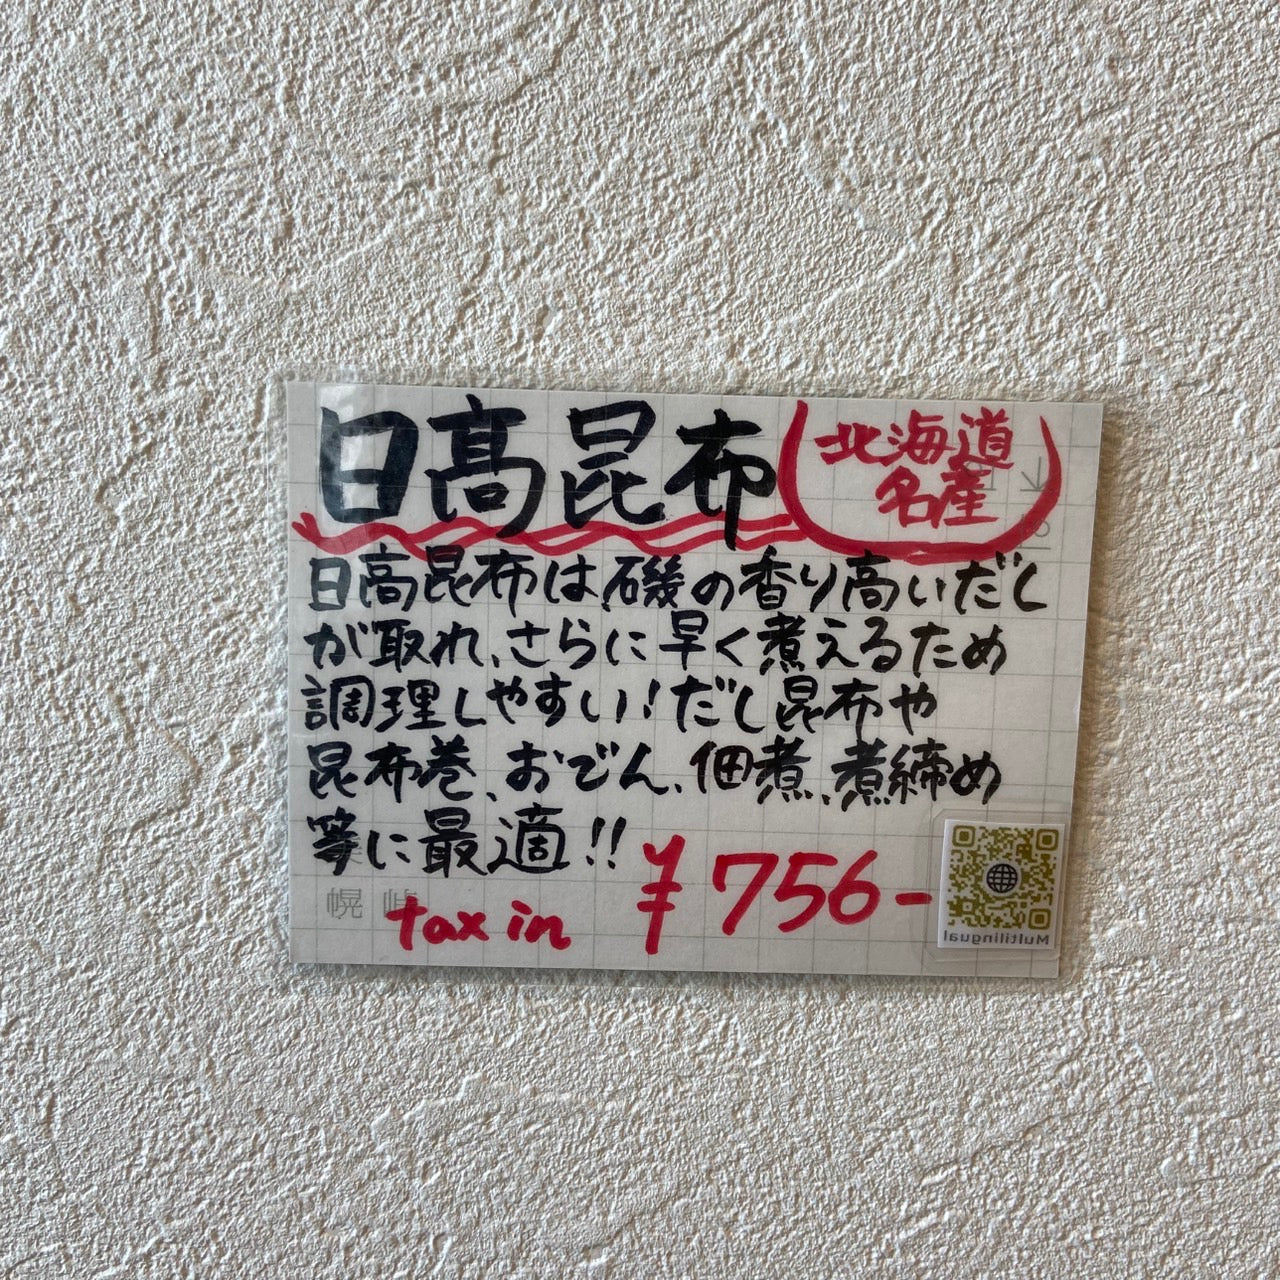 日高昆布
北海道
名産
日高昆布は、磯の香り高いだし
が取れ、さらに早く煮えるため
調理しやすい!だし昆布や
昆布巻、おでん、佃煮、煮締め
等に最適!!
tax in ¥756-
Multilingual